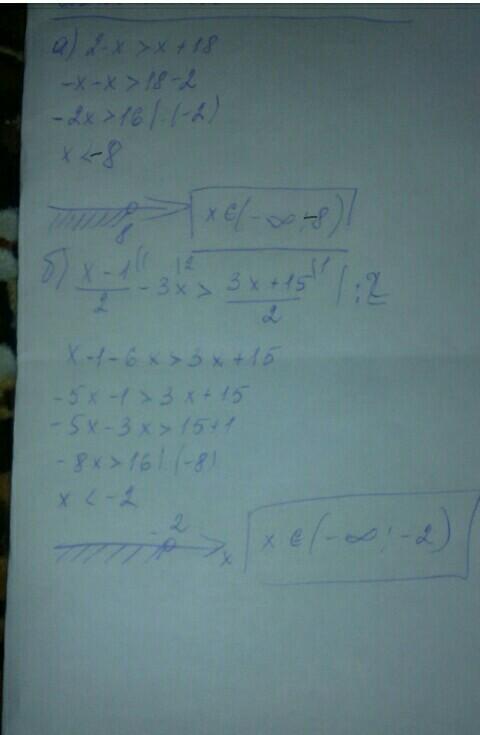 а) 2-x>x+18
-x-x>18-2
-2x>16|:(-2)
x<-8
8
x∈(-∞;-8)
б) (x-1)/2 |1 - 3x |2 > (3x+15)/2 |1 |:2
x-1-6x>3x+15
-5x-1>3x+15
-5x-3x>15+1
-8x>16|:(-8)
x<-2
-2
x
x∈(-∞;-2)